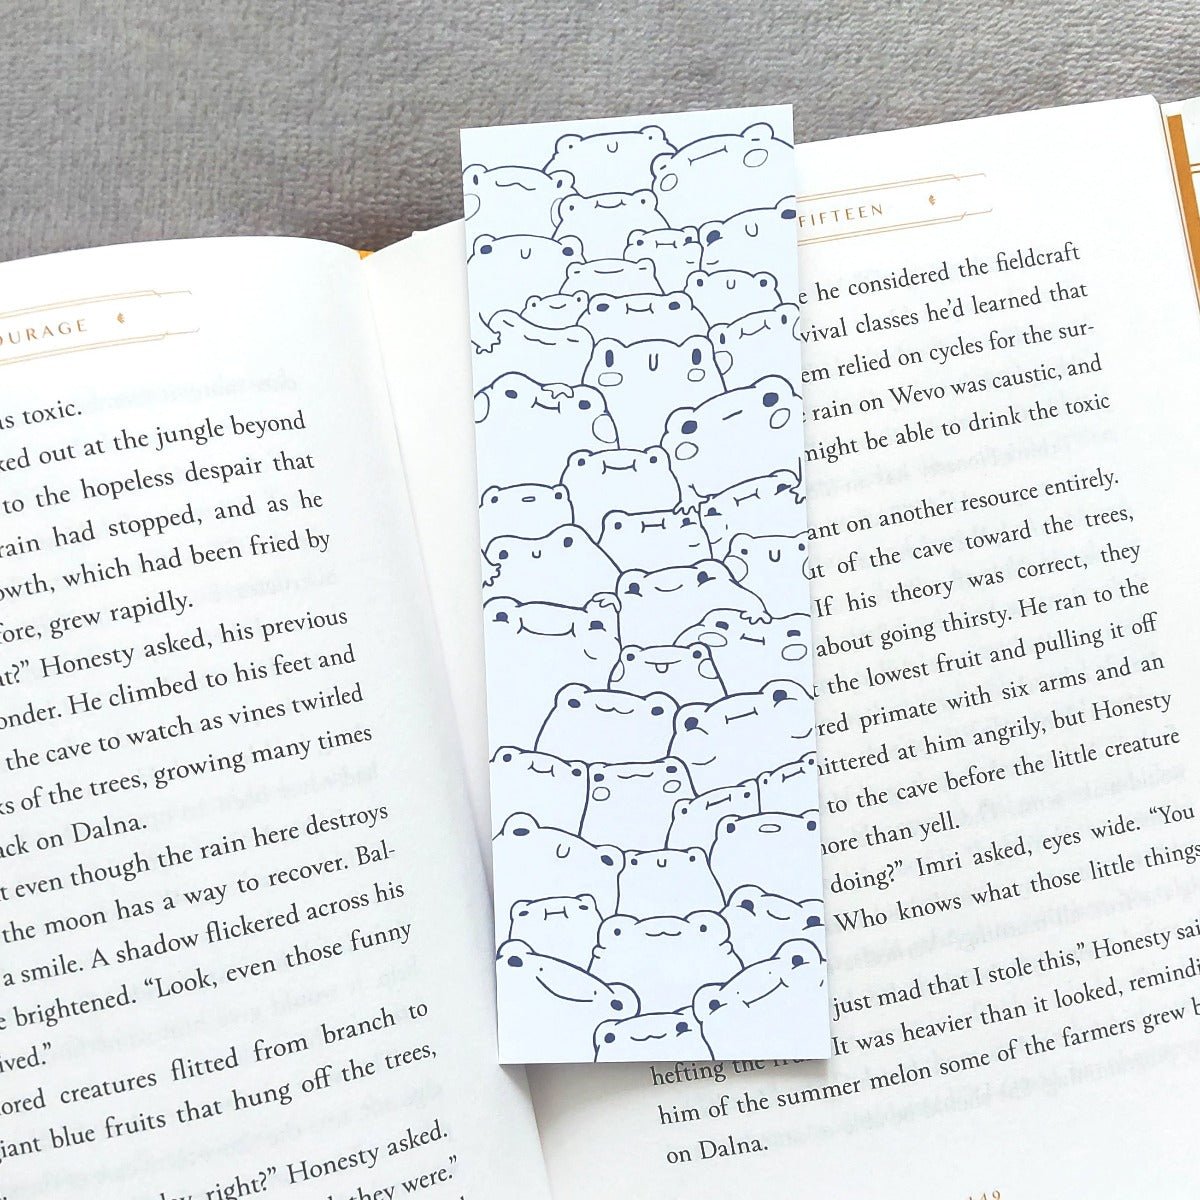 OURAGE
as toxic.
ked out at the jungle beyond
to the hopeless despair that
rain had stopped, and as he
owth, which had been fried by
fore, grew rapidly.
at?” Honesty asked, his previous
onder. He climbed to his feet and
the cave to watch as vines twirled
ks of the trees, growing many times
ack on Dalna.
t even though the rain here destroys
the moon has a way to recover. Bal-
a smile. A shadow flickered across his
e brightened. “Look, even those funny
ived.”
ored creatures flitted from branch to
iant blue fruits that hung off the trees,
right?” Honesty asked.
they were.”
FIFTEEN
e he considered the fieldcraft
vival classes he’d learned that
em relied on cycles for the sur-
rain on Wevo was caustic, and
might be able to drink the toxic
ant on another resource entirely.
ut of the cave toward the trees,
If his theory was correct, they
about going thirsty. He ran to the
t the lowest fruit and pulling it off
red primate with six arms and an
hittered at him angrily, but Honesty
to the cave before the little creature
more than yell.
doing?” Imri asked, eyes wide. “You
Who knows what those little things
just mad that I stole this,” Honesty sai
It was heavier than it looked, remindi
hefting the
him of the summer melon some of the farmers grew b
on Dalna.